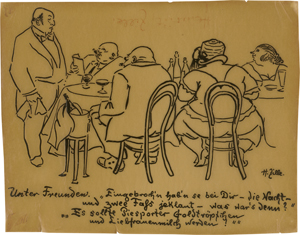 H. Zille
Unter Freunden. „Eingebroch'n hab'n se bei Dir – die Nacht –
und zwei Faß jeklaut – was war's denn?"
„Es sollte Piesporter Goldtröpfchen
und Liebfrauenmilch werden!"